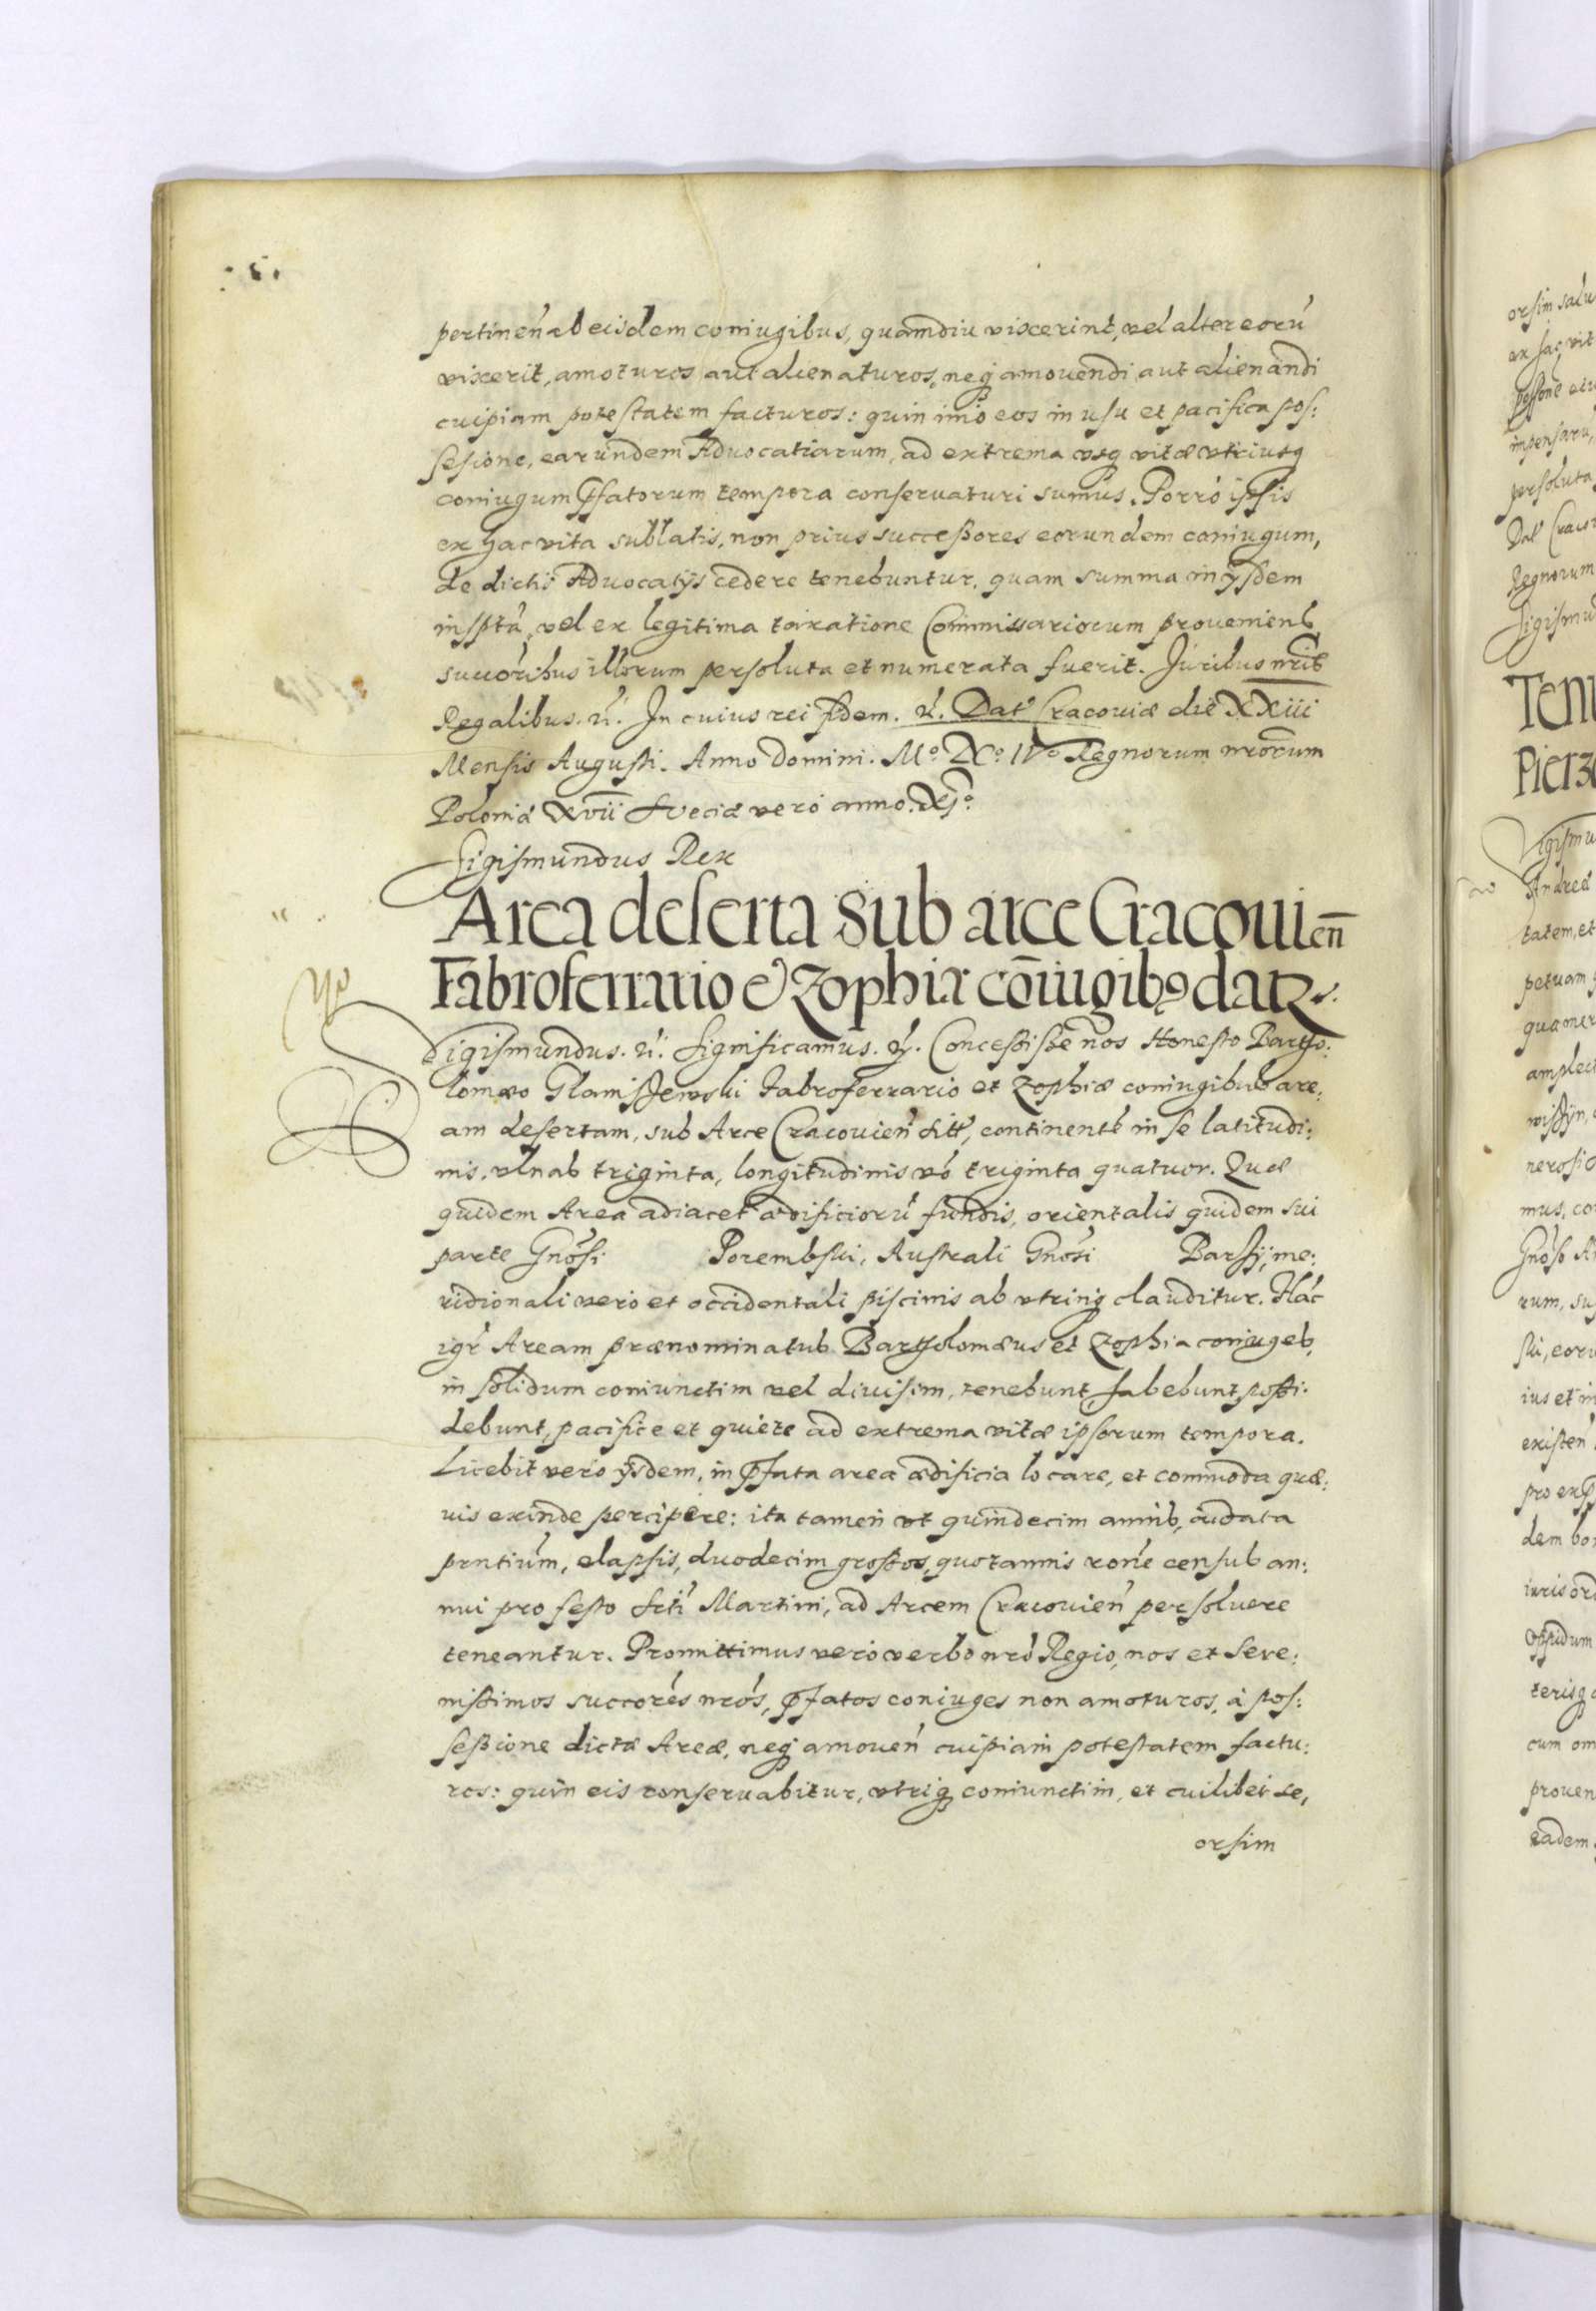 pertineñ ab eisdem coniugibus, quamdiu vixerint, vel alter eorũ
vixerit, amoturos aut alienaturos, neq amovendi aut alienandi
cuipiam potestatem facturos: quin imo eos in usu et pacifica pos:
sesione, earundem Advocatiarum, ad extrema usq vitæ utriusq
coniugum pfatorum tempora conservaturi sumus. Porro ipsis
ex hac vita sublatis, non prius successores eorundem coniugum,
de dictis Advocatijs cedere tenebuntur, quam summa in ijsdem
inspta, vel ex legitima taxatione Commissariorum proveniens
succoribus illorum persoluta et numerata fuerit. Juribus nris
Regalibus. &. In cuius rei fidem. &. Dat Cracoviæ die XXiii
Mensis Augusti. Anno Domini. Mº. DCº. IVº Regnorum nrorum
Poloniæ xvii Sveciæ vero anno. XJº
Sigismundus Rex
Area deserta sub arce Cracovieñ
Fabroferrario et Zophiæ cõiugibq datr.
Sigismundus. &. Significamus. &. Concessisse nos Honesto Bartho:
lomæo Glaniszewski Fabroferrario et Zophiæ coniugibus are:
am desertam, sub Arce Cracovieñ sitã, continentẽ in se latitudi:
nis, ulnas triginta, longitudinis vó triginta quatuor. Quæ
quidem Area adiacet ædificiorũ fundis, orientalis quidem sui
parte Gnosi Porembski, Australi Gnosi Barszij, me:
ridionali vero et occidentali piscinis ab utrinq clauditur. Hác
igr Aream prænominatus Bartholomæus et Zophia coniuges,
in solidum coniunctim vel divisim, tenebunt, habebunt, possi:
debunt, pacifice et quiete ad extrema vitæ ipsorum tempora.
Licebit vero ijsdem, in pfata area ædificia locare, et commoda quæ:
vis exinde percipere: ita tamen ut quindecim annis, à data
pntium, elapsis, duodecim grossos, quotannis rone census an:
nui pro festo Scti Martini, ad Arcem Cracovieñ persolvere
teneantur. Promittimus vero verbo nro Regio, nos et Sere:
nissimos succores nros, pfatos coniuges non amoturos, à pos:
sessione dictæ Areæ, neq amoveñ cuipiam potestatem factu:
ros: quin eis conservabitur, utriq coniunctim, et cuilibet se,
orsim